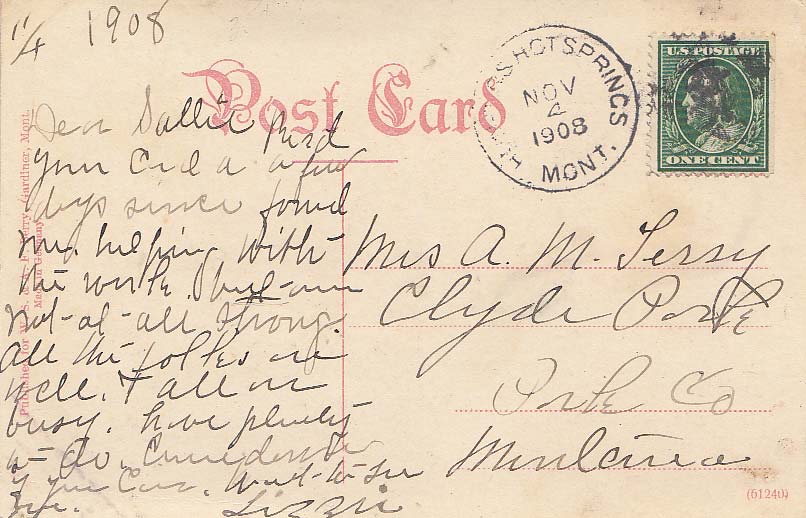 11/4 1908
Post Card
HUNTERS HOT SPRINGS
NOV
4
1908
MONT.
U.S. POSTAGE
ONE CENT
Dear Sallie Recd
your Card a few
days since found
me helping with
the work. but am
not-at-all strong.
All the folks are
well. & all are
busy. have plenty
to do. Come down
if you can. Want to see
you.
Lizzie
Mrs A. M. Terry
Clyde Park
Park Co
Montana
Published for W. S. Berry, Gardiner, Mont.
Made in Germany
(51240)